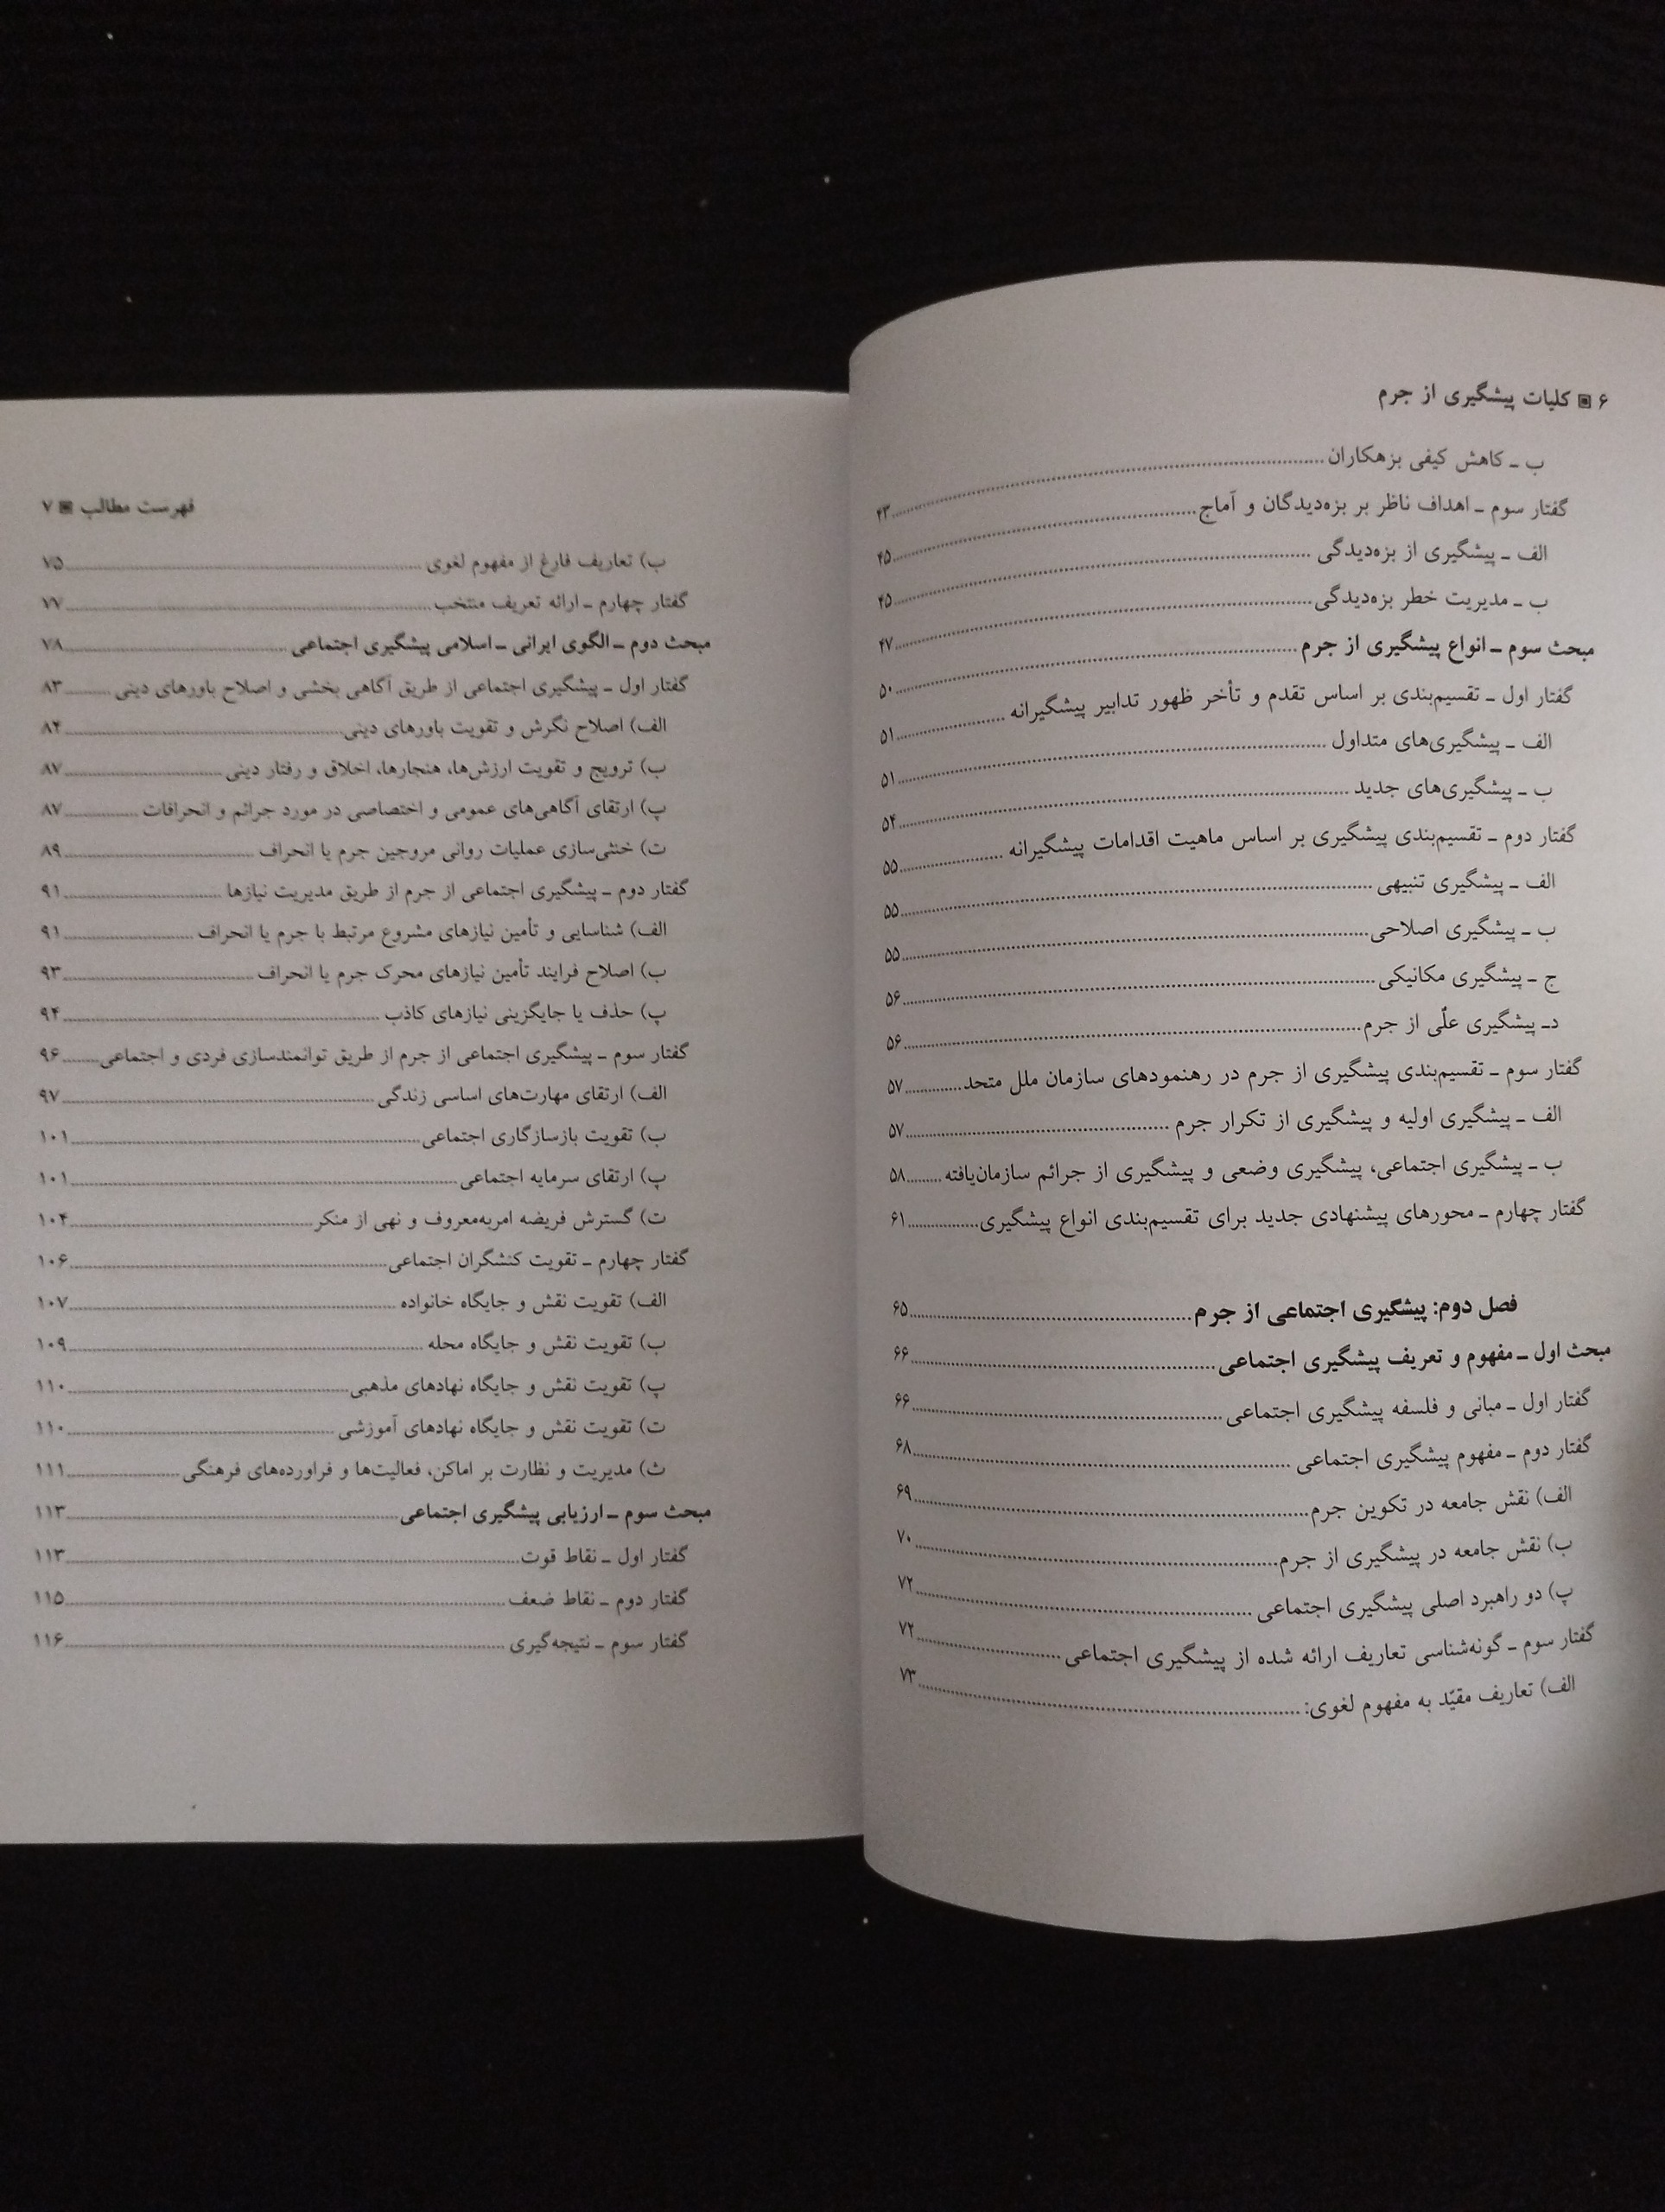 ۶ ▣ کلیات پیشگیری از جرم
ب ـ کاهش کیفی بزهکاران ........ ۴۳
گفتار سوم ـ اهداف ناظر بر بزه‌دیدگان و آماج ........ ۴۵
الف ـ پیشگیری از بزه‌دیدگی ........ ۴۵
ب ـ مدیریت خطر بزه‌دیدگی ........ ۴۷
مبحث سوم ـ انواع پیشگیری از جرم ........ ۵۰
گفتار اول ـ تقسیم‌بندی بر اساس تقدم و تأخر ظهور تدابیر پیشگیرانه ........ ۵۱
الف ـ پیشگیری‌های متداول ........ ۵۱
ب ـ پیشگیری‌های جدید ........ ۵۴
گفتار دوم ـ تقسیم‌بندی پیشگیری بر اساس ماهیت اقدامات پیشگیرانه ........ ۵۵
الف ـ پیشگیری تنبیهی ........ ۵۵
ب ـ پیشگیری اصلاحی ........ ۵۵
ج ـ پیشگیری مکانیکی ........ ۵۶
دـ پیشگیری علّی از جرم ........ ۵۶
گفتار سوم ـ تقسیم‌بندی پیشگیری از جرم در رهنمودهای سازمان ملل متحد ........ ۵۷
الف ـ پیشگیری اولیه و پیشگیری از تکرار جرم ........ ۵۷
ب ـ پیشگیری اجتماعی، پیشگیری وضعی و پیشگیری از جرائم سازمان‌یافته ........ ۵۸
گفتار چهارم ـ محورهای پیشنهادی جدید برای تقسیم‌بندی انواع پیشگیری ........ ۶۱
فصل دوم: پیشگیری اجتماعی از جرم ........ ۶۵
مبحث اول ـ مفهوم و تعریف پیشگیری اجتماعی ........ ۶۶
گفتار اول ـ مبانی و فلسفه پیشگیری اجتماعی ........ ۶۶
گفتار دوم ـ مفهوم پیشگیری اجتماعی ........ ۶۸
الف) نقش جامعه در تکوین جرم ........ ۶۹
ب) نقش جامعه در پیشگیری از جرم ........ ۷۰
پ) دو راهبرد اصلی پیشگیری اجتماعی ........ ۷۲
گفتار سوم ـ گونه‌شناسی تعاریف ارائه شده از پیشگیری اجتماعی ........ ۷۲
الف) تعاریف مقیّد به مفهوم لغوی: ........ ۷۳
فهرست مطالب ▣ ۷
ب) تعاریف فارغ از مفهوم لغوی ........ ۷۵
گفتار چهارم ـ ارائه تعریف منتخب ........ ۷۷
مبحث دوم ـ الگوی ایرانی ـ اسلامی پیشگیری اجتماعی ........ ۷۸
گفتار اول ـ پیشگیری اجتماعی از طریق آگاهی بخشی و اصلاح باورهای دینی ........ ۸۳
الف) اصلاح نگرش و تقویت باورهای دینی ........ ۸۴
ب) ترویج و تقویت ارزش‌ها، هنجارها، اخلاق و رفتار دینی ........ ۸۷
پ) ارتقای آگاهی‌های عمومی و اختصاصی در مورد جرائم و انحرافات ........ ۸۷
ت) خنثی‌سازی عملیات روانی مروجین جرم یا انحراف ........ ۸۹
گفتار دوم ـ پیشگیری اجتماعی از جرم از طریق مدیریت نیازها ........ ۹۱
الف) شناسایی و تأمین نیازهای مشروع مرتبط با جرم یا انحراف ........ ۹۱
ب) اصلاح فرایند تأمین نیازهای محرک جرم یا انحراف ........ ۹۳
پ) حذف یا جایگزینی نیازهای کاذب ........ ۹۴
گفتار سوم ـ پیشگیری اجتماعی از جرم از طریق توانمندسازی فردی و اجتماعی ........ ۹۶
الف) ارتقای مهارت‌های اساسی زندگی ........ ۹۷
ب) تقویت بازسازگاری اجتماعی ........ ۱۰۱
پ) ارتقای سرمایه اجتماعی ........ ۱۰۱
ت) گسترش فریضه امربه‌معروف و نهی از منکر ........ ۱۰۴
گفتار چهارم ـ تقویت کنشگران اجتماعی ........ ۱۰۶
الف) تقویت نقش و جایگاه خانواده ........ ۱۰۷
ب) تقویت نقش و جایگاه محله ........ ۱۰۹
پ) تقویت نقش و جایگاه نهادهای مذهبی ........ ۱۱۰
ت) تقویت نقش و جایگاه نهادهای آموزشی ........ ۱۱۰
ث) مدیریت و نظارت بر اماکن، فعالیت‌ها و فراورده‌های فرهنگی ........ ۱۱۱
مبحث سوم ـ ارزیابی پیشگیری اجتماعی ........ ۱۱۳
گفتار اول ـ نقاط قوت ........ ۱۱۳
گفتار دوم ـ نقاط ضعف ........ ۱۱۵
گفتار سوم ـ نتیجه‌گیری ........ ۱۱۶